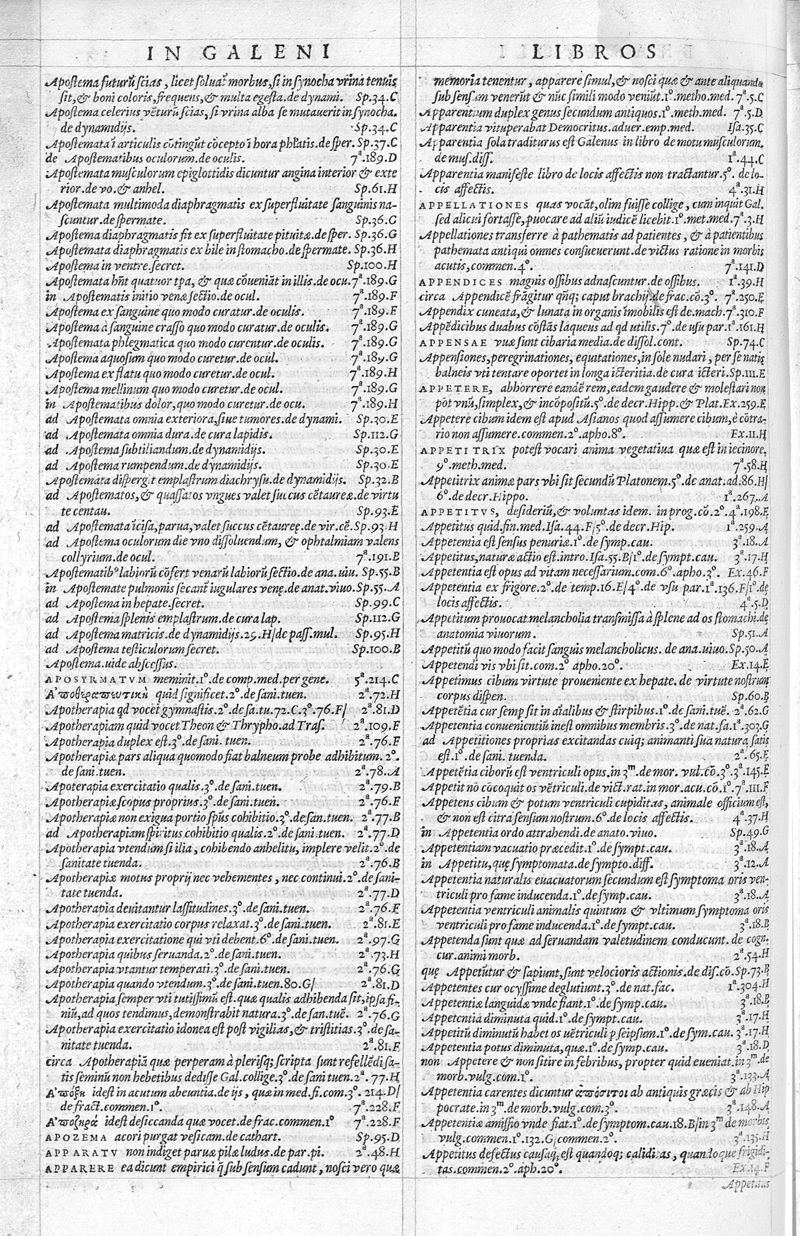 IN GALENI
Apostema futurū scias, licet soluat morbus, si in synocha vrina tenuis
sit, & boni coloris, frequens, & multa egesta. de dynami. Sp.34.C
Apostema celerius vēturū scias, si vrina alba se mutauerit in synocha.
de dynamidijs. Sp.34.C
Apostemata ī articulis cōtingūt cōcepto ī hora de sper. Sp.37.C
de Apostematibus oculorum. de oculis. 7ª.189.D
Apostemata musculorum epiglottidis dicuntur angina interior & exte
rior. de vo. & anhel. Sp.61.H
Apostemata multimoda diaphragmatis ex superfluitate sanguinis na-
scuntur. de spermate. Sp.36.C
Apostemata diaphragmatis fit ex superfluitate pituitæ. de sper. Sp.36.G
Apostemata diaphragmatis ex bile in stomacho. de spermate. Sp.36.H
Apostema in ventre. secret. Sp.100.H
Apostemata hñt quatuor tpa, & quæ cōueniāt in illis. de ocu. 7ª.189.G
in Apostematis initio venæ sectio. de ocul. 7ª.189.F
Apostema ex sanguine quo modo curatur. de oculis. 7ª.189.F
Apostema à sanguine crasso quo modo curatur. de oculis. 7ª.189.G
Apostemata phlegmatica quo modo curentur. de oculis. 7ª.189.G
Apostema aquosum quo modo curetur. de ocul. 7ª.189.G
Apostema ex flatu quo modo curetur. de ocul. 7ª.189.H
Apostema mellinum quo modo curetur. de ocul. 7ª.189.G
in Apostematibus dolor, quo modo curetur. de ocu. 7ª.189.H
ad Apostemata omnia exteriora, siue tumores. de dynami. Sp.30.E
ad Apostemata omnia dura. de cura lapidis. Sp.112.G
ad Apostema subtiliandum. de dynamidijs. Sp.30.E
ad Apostema rumpendum. de dynamidijs. Sp.30.E
Apostemata dispergit emplastrum diachrysu. de dynamidijs. Sp.32.B
ad Apostematos, & quassatos vngues valet succus cētaureæ. de virtu
te centau. Sp.93.E
ad Apostemata īcisa, parua, valet succus cētaureę. de vir. cē. Sp.93.H
ad Apostema oculorum die vno dissoluendum, & ophtalmiam valens
collyrium. de ocul. 7ª.191.B
Apostematibº labiorū cōfert venarū labiorū sectio. de ana. uiu. Sp.55.B
in Apostemate pulmonis secant iugulares venę. de anat. viuo. Sp.55.A
ad Apostema in hepate. secret. Sp.99.C
ad Apostema splenis emplastrum. de cura lap. Sp.112.G
ad Apostema matricis. de dynamidijs. 29.H/de pass. mul. Sp.95.H
ad Apostema testiculorum secret. Sp.100.B
Apostema. uide abscessus.
APOSYRMATVM meminit. 1º. de comp. med. per gene. 5ª.214.C
quid significet. 2º. de sani. tuen. 2ª.72.H
Apotherapia qd vocei gymnastis. 2º. de sa. tu. 72.C. 3º. 76.F/ 2ª.81.D
Apotherapiam quid vocet Theon & Thrypho. ad Tras. 2ª.109.F
Apotherapia duplex est. 3º. de sani. tuen. 2ª.76.F
Apotherapiæ pars aliqua quomodo fiat balneum probe adhibitum. 2º.
de sani. tuen. 2ª.78.A
Apoterapia exercitatio qualis. 3º. de sani. tuen. 2ª.79.B
Apotherapiæ scopus proprius. 3º. de sani. tuen. 2ª.76.F
Apotherapiæ non exigua portio spūs cohibitio. 3º. de san. tuen. 2ª.77.B
ad Apotherapiam spiritus cohibitio qualis. 2º. de sani. tuen. 2ª.77.D
Apotherapia vtendum si ilia, cohibendo anhelitu, implere velit. 2º. de
sanitate tuenda. 2ª.76.B
Apotherapiæ motus proprij nec vehementes, nec continui. 2º. de sani-
tate tuenda. 2ª.77.D
Apotherapia deuitantur lassitudines. 3º. de sani. tuen. 2ª.76.F
Apotherapia exercitatio corpus relaxat. 3º. de sani. tuen. 2ª.81.E
Apotherapia exercitatione qui vti debent. 6º. de sani. tuen. 2ª.97.G
Apotherapia quibus seruanda. 2º. de sani. tuen. 2ª.73.H
Apotherapia vtantur temperati. 3º. de sani. tuen. 2ª.76.G
Apotherapia quando vtendum. 3º. de sani. tuen. 80.G/ 2ª.81.D
Apotherapia semper vti tutissimū est. quæ qualis adhibenda sit, ipsa fi-
niū, ad quos tendimus, demonstrabit natura. 3º. de san. tuē. 2ª.76.G
Apotherapia exercitatio idonea est post vigilias, & tristitias. 3º. de sa-
nitate tuenda. 2ª.81.F
circa Apotherapiā quæ perperam à plerisq; scripta sunt refellēdi sa-
tis seminū non hebetibus dedisse Gal. collige. 3º. de sani. tuen. 2ª.77.H
idest in acutum abeuntia. de ijs, quæ in med. fi. com. 3º. 214.D/
de fract. commen. 1º. 7ª.228.F
idest desiccanda quæ vocet. de frac. commen. 1º 7ª.228.F
APOZEMA acori purgat vesicam. de cathart. Sp.95.D
APPARATV non indiget paruæ pilæ ludus. de par. pi. 2ª.48.H
APPARERE ea dicunt empirici q̃ sub sensum cadunt, nosci vero quæ
LIBROS
memoria tenentur, apparere simul, & nosci quæ & ante aliquando
sub sensum venerūt & nūc simili modo veniūt. 1º. metho. med. 7ª.5.C
Apparentum duplex genus secundum antiquos. 1º. meth. med. 7ª.5.D
Apparentia vituperabat Democritus. aduer. emp. med. Isa.35.C
Apparentia sola traditurus est Galenus in libro de motu musculorum.
de mus. diss. 1ª.44.C
Apparentia manifeste libro de locis affectis non tractantur. 5º. de lo-
cis affectis. 4ª.31.H
APPELLATIONES quas vocāt, olim fuisse collige, cum inquit Gal.
sed alicui fortasse, puocare ad aliū iudicē licebit. 1º. met. med. 7ª.3.H
Appellationes transferre à pathematis ad patientes, & à patientibus
pathemata antiqui omnes consueuerunt. de victus ratione in morbis
acutis, commen. 4º. 7ª.141.D
APPENDICES magnis ossibus adnascuntur. de ossibus. 1ª.39.H
circa Appendicē frāgitur qñq; caput brachij. de frac. cō. 3º. 7ª.250.E
Appendix cuneata, & lunata in organis imobilis est. de mach. 7ª.310.F
Appēdicibus duabus cōstās laqueus ad qd utilis. 7º. de usu par. 1ª.161.H
APPENSAE vuæ sunt cibaria media. de dissol. cont. Sp.74.C
Appensiones, peregrinationes, equitationes, in sole nudari, per se natis
balneis vti tentare oportet in longa icteritia. de cura icteri. Sp.111.E
APPETERE, abhorrere eandē rem, eadem gaudere & molestari non
pōt vnū, simplex, & incōpositū. 5º. de decr. Hipp. & Plat. Ex.259.E
Appetere cibum idem est apud Asianos quod assumere cibum, è cōtra-
rio non assumere. commen. 2º. apho. 8º. Ex.11.H
APPETITRIX potest vocari anima vegetatiua quæ est in iecinore,
9º. meth. med. 7ª.58.H
Appetitrix animæ pars vbi sit secundū Platonem. 5º. de anat. ad. 86.H/
6º. de decr. Hippo. 1ª.267.A
APPETITVS, desideriū, & voluntas idem. in prog. cō. 2º. 4ª.198.E
Appetitus quid. fin. med. Isa.44.F/5º. de decr. Hip. 1ª.259.A
Appetentia est sensus penuriæ. 1º. de symp. cau. 3ª.18.A
Appetitus, naturæ actio est. intro. Isa.55.B/1º. de sympt. cau. 3ª.17.H
Appetentia est opus ad vitam necessarium. com. 6º. apho. 3º. Ex.46.F
Appetentia ex frigore. 2º. de temp. 16.E/4º. de vsu par. 1ª.136.F/1º. de
locis affectis. 4ª.5.D
Appetitum prouocat melancholia transmissa à splene ad os stomachi. de
anatomia viuorum. Sp.51.A
Appetitū quo modo facit sanguis melancholicus. de ana. uiuo. Sp.50.A
Appetendi vis vbi sit. com. 2º apho. 20º. Ex.14.E
Appetimus cibum virtute proueniente ex hepate. de virtute nostrum
corpus dispen. Sp.60.B
Appetētia cur semp sit in aīalibus & stirpibus. 1º. de sani. tuē. 2ª.62.G
Appetentia conuenientiū inest omnibus membris. 3º. de nat. fa. 1ª.303.G
ad Appetitiones proprias excitandas cuiq; animanti sua natura satis
est. 1º. de sani. tuenda. 2ª.65.E
Appetētia ciborū est ventriculi opus. in 3ᵐ. de mor. vul. cō. 3º. 3ª.145.E
Appetit nō cōcoquit os vētriculi. de vict. rat. in mor. acu. cō. 1º. 7ª.111.F
Appetens cibum & potum ventriculi cupiditas, animale officium est,
& non est citra sensum nostrum. 6º. de locis affectis. 4ª.37.H
in Appetentia ordo attrahendi. de anato. viuo. Sp.49.G
Appetentiam vacuatio præcedit. 1º. de sympt. cau. 3ª.18.A
in Appetitu, quę symptomata. de sympto. diff. 3ª.12.A
Appetentia naturalis euacuatorum secundum est symptoma oris ven-
triculi pro fame inducenda. 1º. de symp. cau. 3ª.18.A
Appetentia ventriculi animalis quintum & vltimum symptoma oris
ventriculi pro fame inducenda. 1º. de symp. cau. 3ª.18.B
Appetenda sunt quæ ad seruandam valetudinem conducunt. de cogn.
cur. animi morb. 2ª.54.H
quę Appetūtur & sapiunt, sunt velocioris actionis. de dis. cō. Sp.73.B
Appetentes cur ocyssime deglutiunt. 3º. de nat. fac. 1ª.304.H
Appetentiæ languidæ vnde fiant. 1º. de symp. cau. 3ª.18.B
Appetentia diminuta quid. 1º. de sympt. cau. 3ª.17.H
Appetitū diminutū habet os uētriculi p seipsum. 1º. de sym. cau. 3ª.17.H
Appetentia potus diminuta, quæ. 1º. de symp. cau. 3ª.18.D
non Appetere & non sitire in febribus, propter quid eueniat. in 3ᵐ. de
morb. vulg. com. 1º. 3ª.133.A
Appetentia carentes dicuntur ἀπόσιτοι ab antiquis græcis & ab Hip
pocrate. in 3ᵐ. de morb. vulg. com. 3º. 3ª.148.A
Appetentiæ amissio vnde fiat. 1º. de symptom. cau. 18.B/in 3ᵐ de morbis
vulg. commen. 1º. 132.G/commen. 2º. 3ª.135.H
Appetitus defectus causaq; est quandoq; caliditas, quandoque frigidi-
tas. commen. 2º. aph. 20º. Ex.14.F
Appetitus